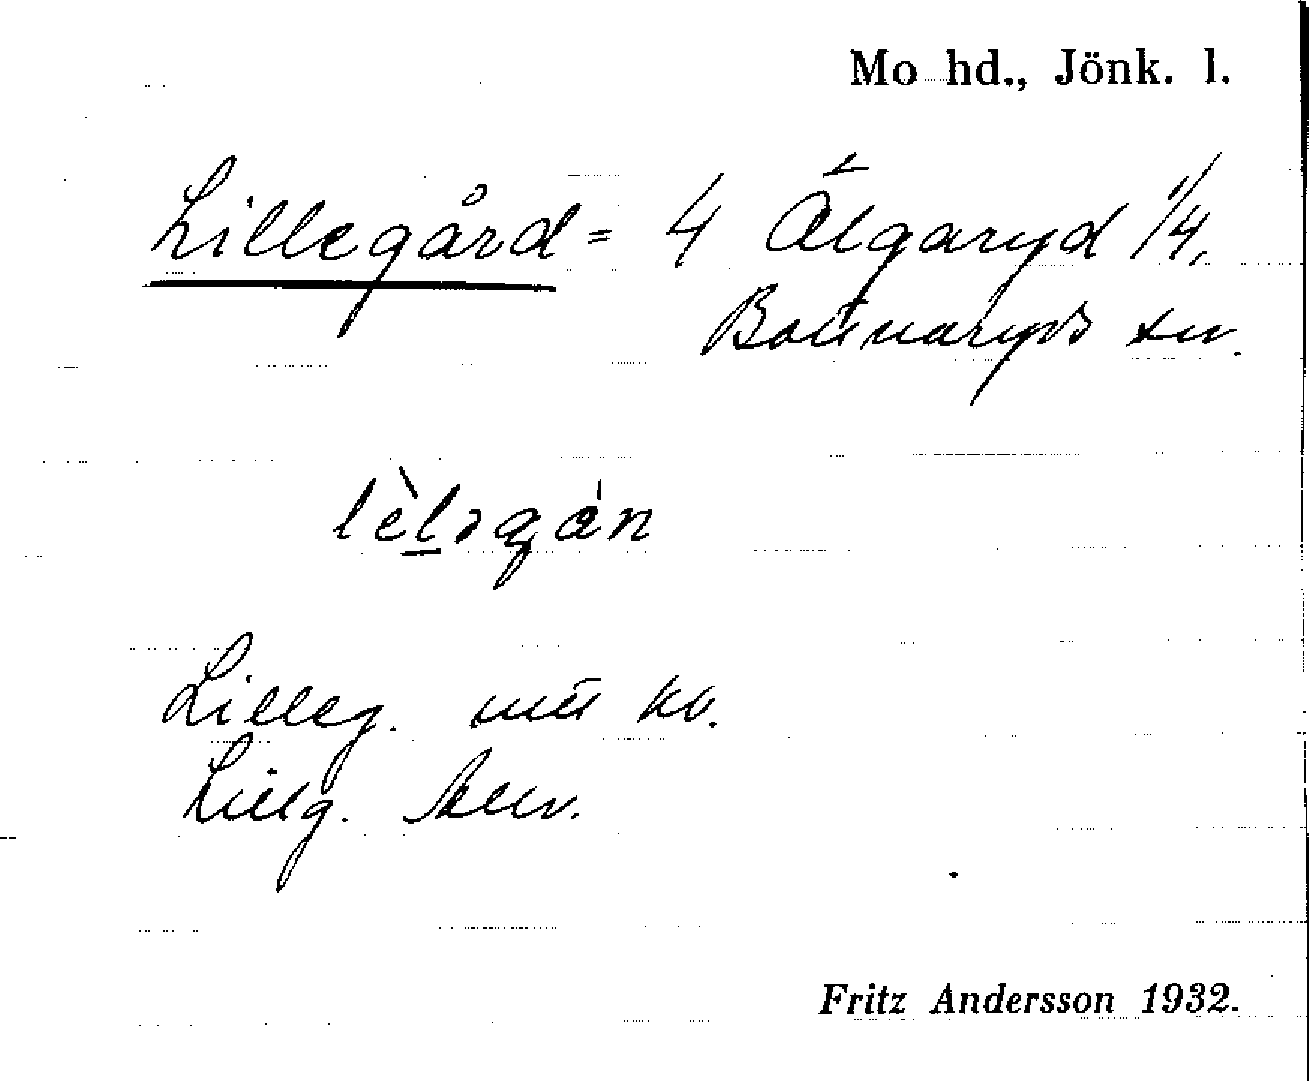 Mo hd., Jönk. l.
Lillegård = 4 Älgaryd 1/4,
Bottnaryds sn.
lèləgán
Lilleg. utt kv.
Lillg.
Fritz Andersson 1932.